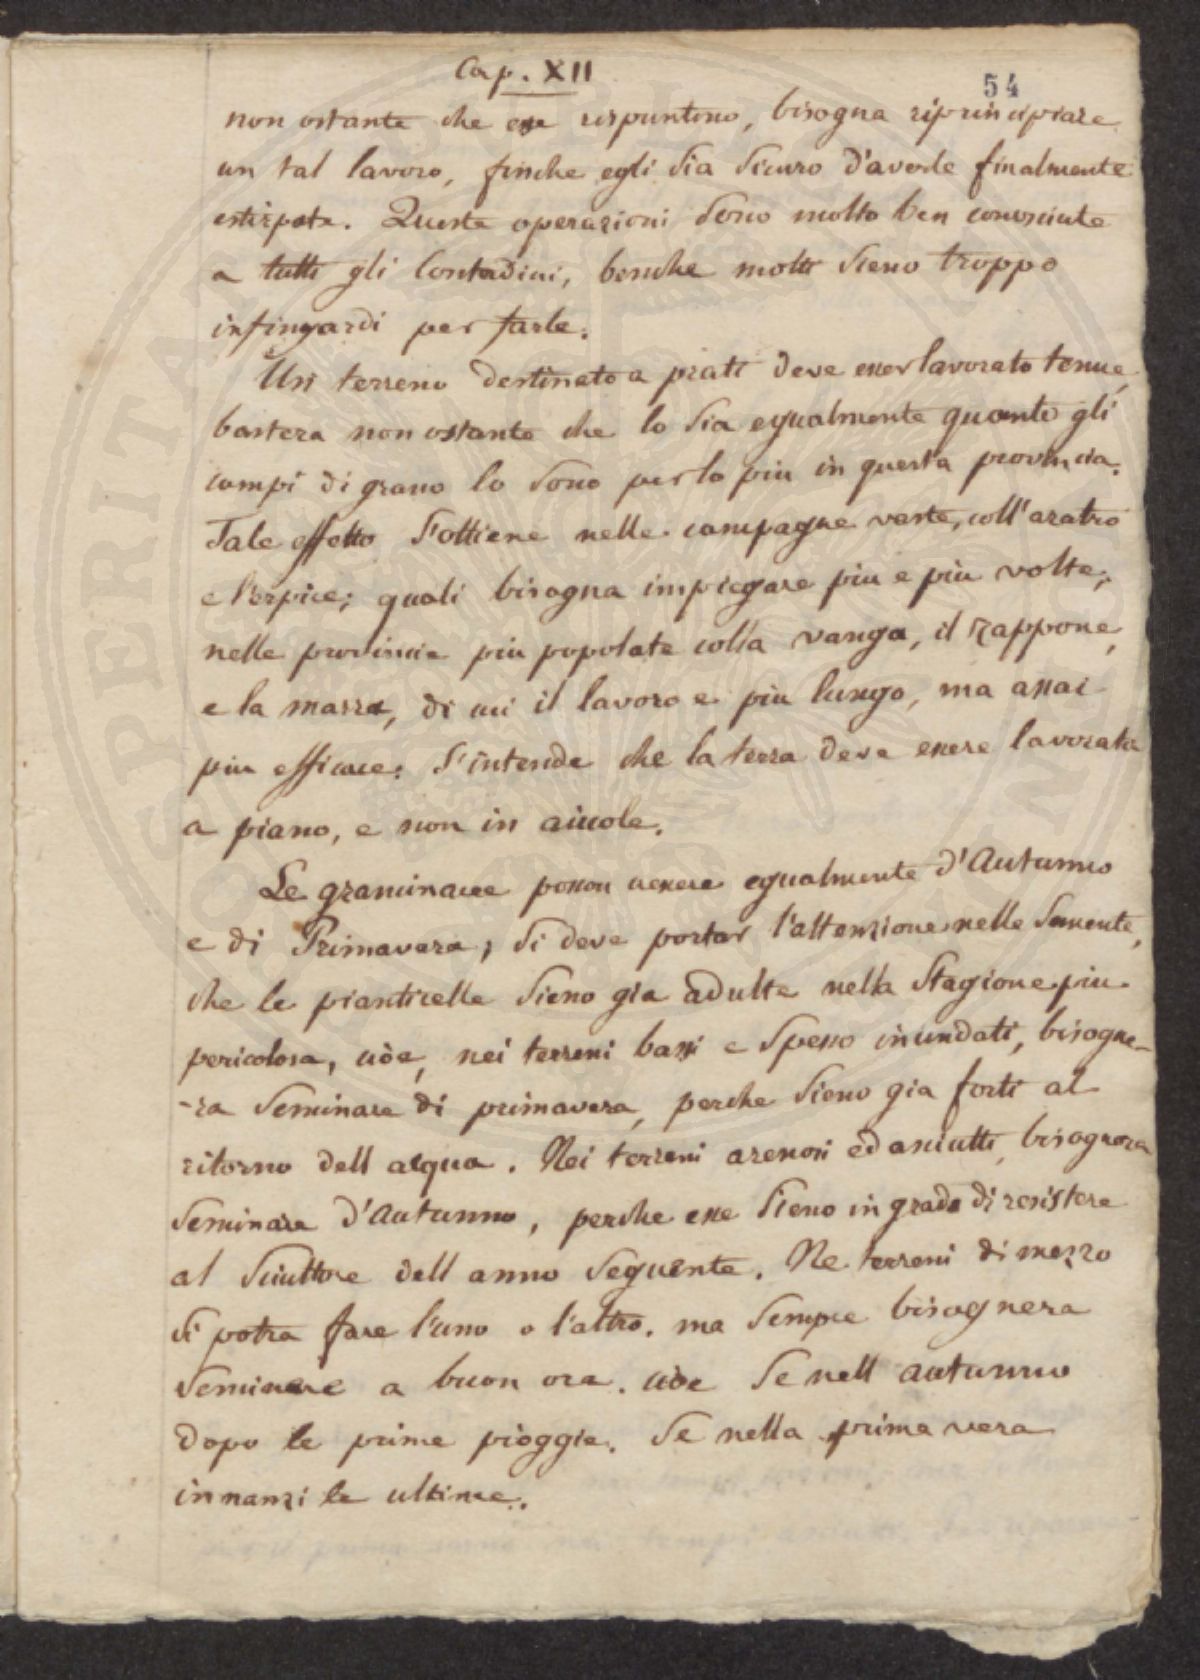 Cap. XII
54
non ostante che esse rispuntino, bisogna riprincipiare
un tal lavoro, finche egli sia sicuro d'averle finalmente
estirpate. Queste operazioni sono molto ben conosciute
a tutti gli Contadini, benche molti sieno troppo
infingardi per farle.
Un terreno destinato a prati deve esser lavorato tenue,
bastera non ostante che lo sia egualmente quanto gli
campi di grano lo sono per lo piu in questa provincia.
Tale effetto s'ottiene nelle campagne vaste, coll'aratro
e l'erpice; quali bisogna impiegare piu e piu volte;
nelle provincie piu popolate colla vanga, il zappone,
e la marra, di cui il lavoro e piu lungo, ma assai
piu efficace. s'intende che la terra deve essere lavorata
a piano, e non in aiuole.
Le graminacee posson egualmente d'Autunno
e di Primavera, si deve portar l'attenzione nelle semente,
che le pianticelle sieno gia adulte nella stagione piu
pericolosa, cioe, nei terreni bassi e spesso inundati, bisogne-
-ra seminare di primavera, perche sieno gia forti al
ritorno dell acqua. Nei terreni arenosi ed asciutti, bisognera
seminare d'Autunno, perche esse sieno in grado di resistere
al sciuttore dell anno seguente. Ne terreni di mezzo
si potra fare l'uno o l'altro. ma sempre bisognera
seminare a buon ora. cioe se nell autunno
dopo le prime pioggie. se nella primavera
innanzi le ultime.
SPERITAT